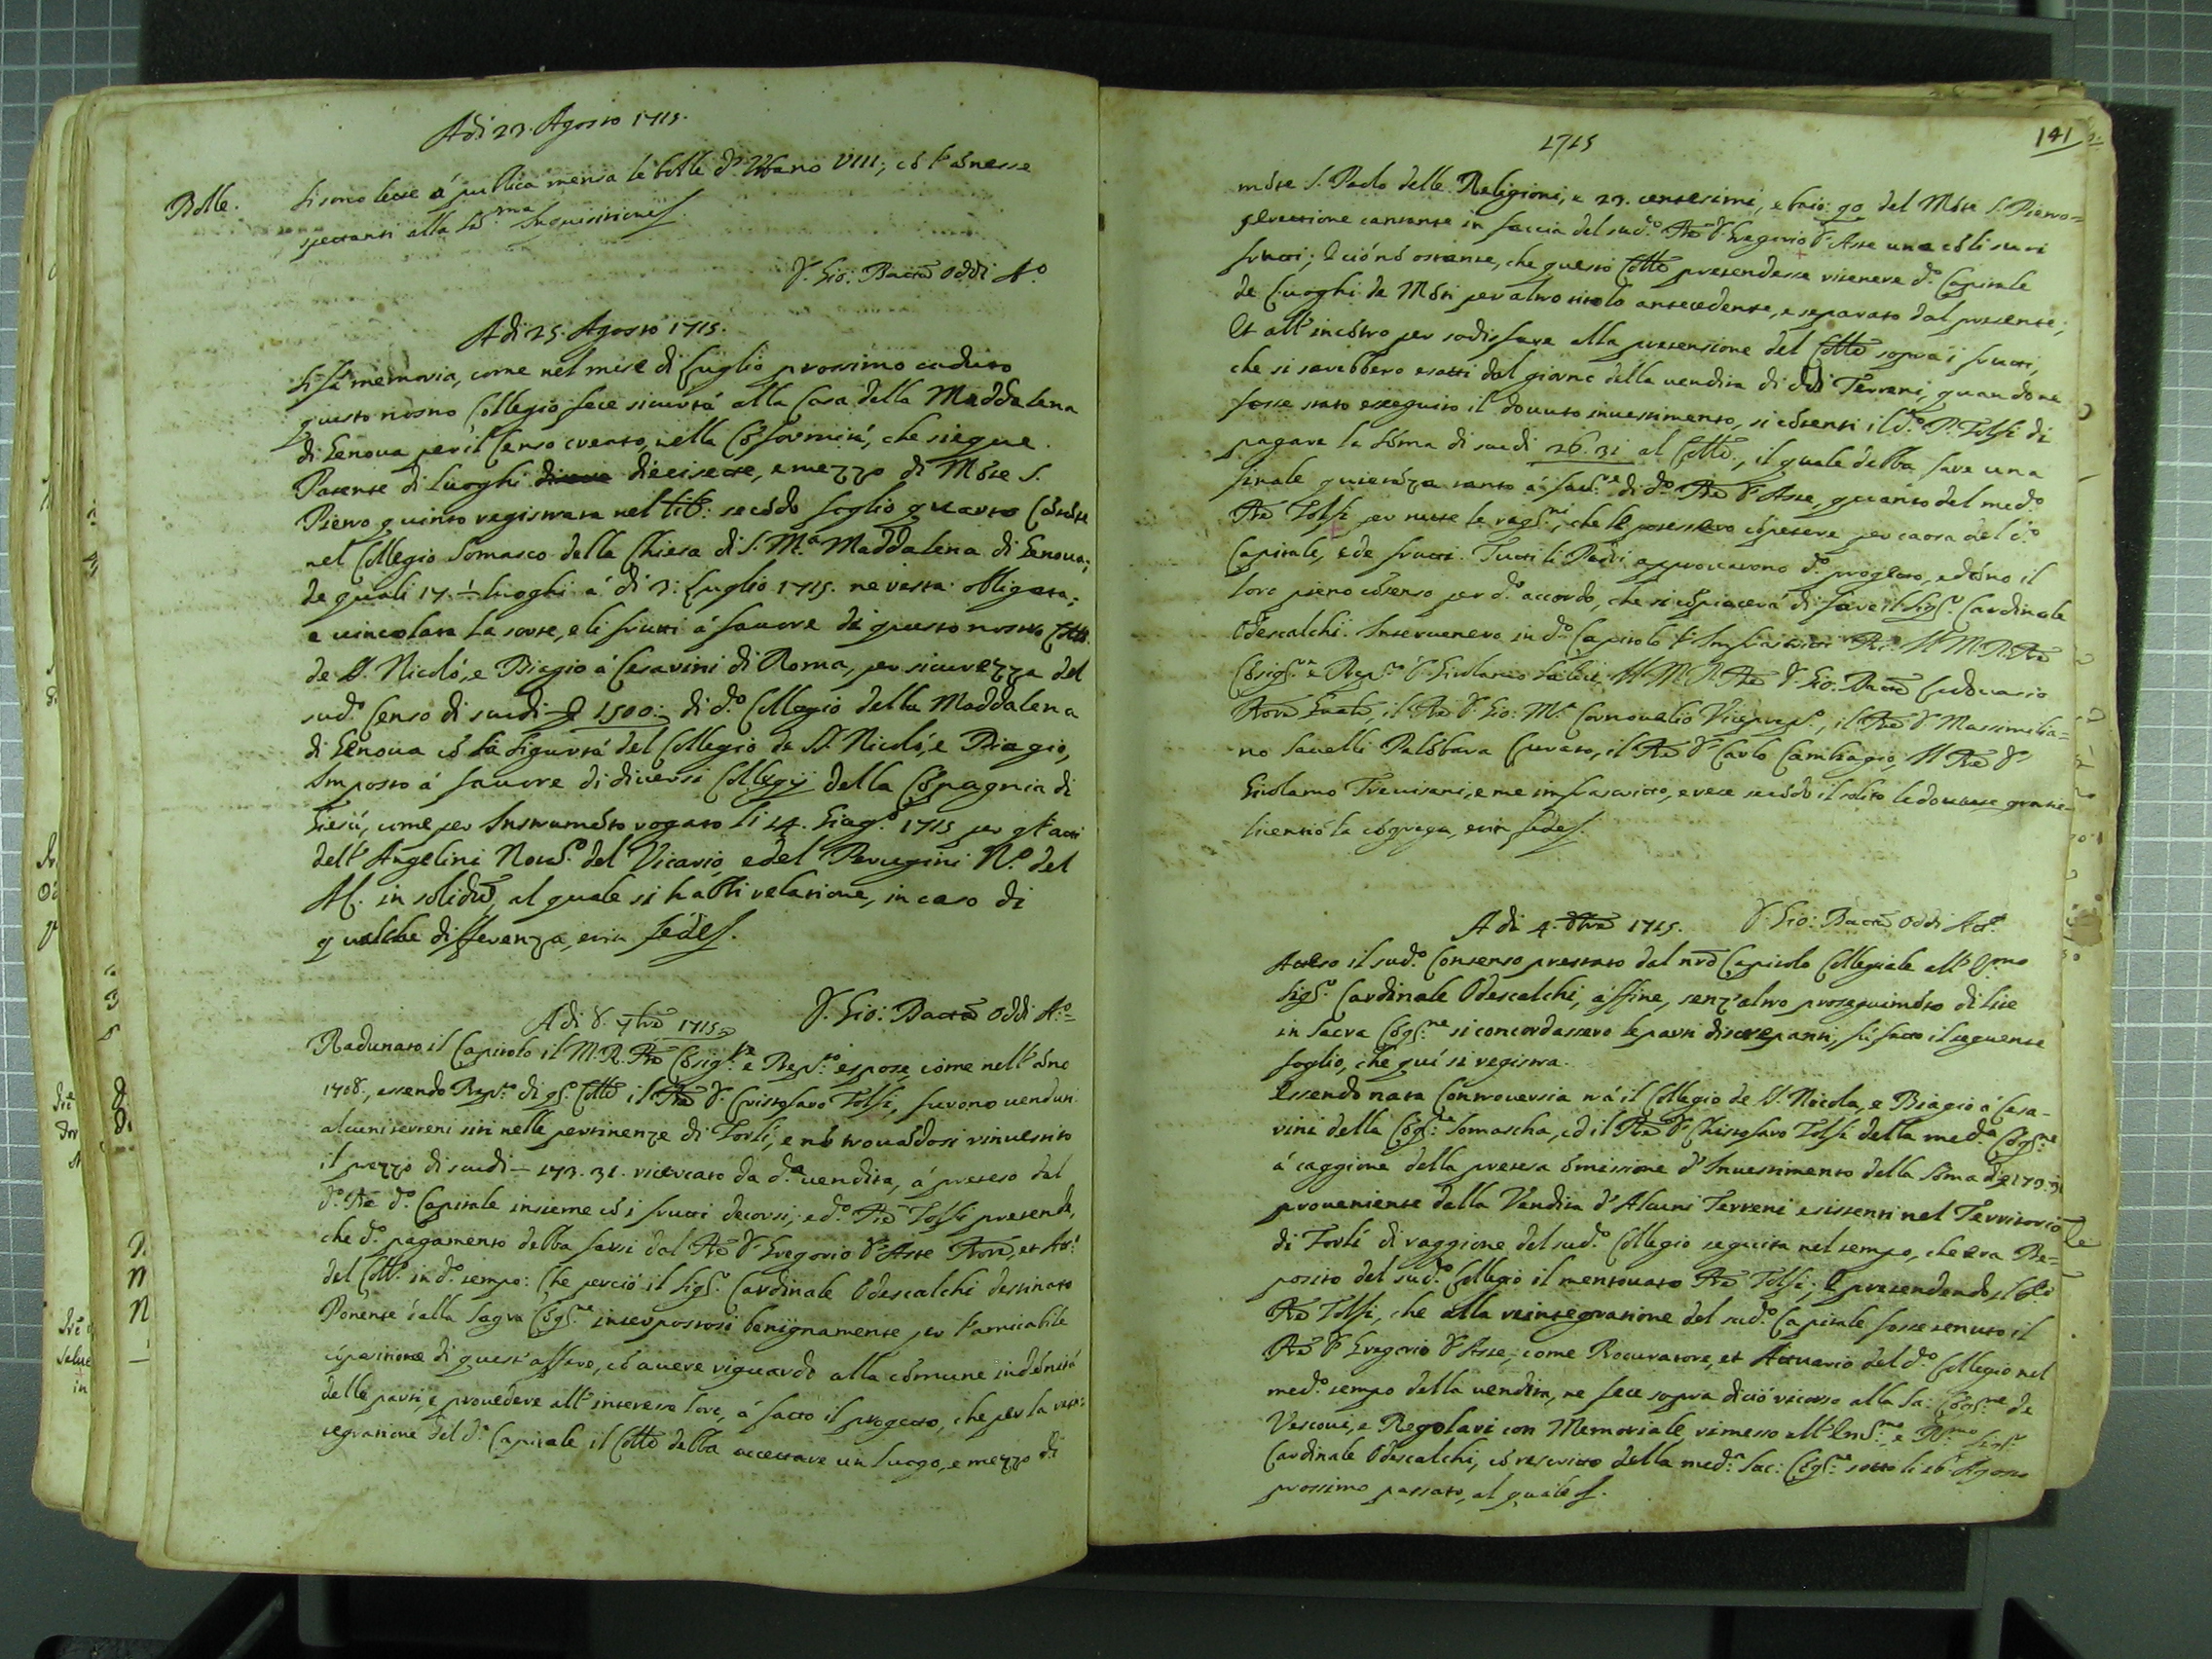 Adi 23. Agosto 1715.
Bolle. Si sono lette á publica mensa le bolle d'Urbano VIII; có l'ónesse
spettanti alla Sá.ma Inquisitione.
D. Gio: Batta Oddi A.o
Adi 25. Agosto 1715.
Si fá memoria, come nel mese di Luglio prossimo caduto
questo nostro Collegio fece sicurtá alla Casa della Maddalena
di Genova per il Censo creato, nella Cóformitá, che siegue.
Patente di luoghi diecisette, e mezzo di Móte S.
Pietro quinto registrata nel lib: secódo foglio quarto
nel Collegio Somasco della Chiesa di S. M.a Maddalena di Genova;
de quali 17. ½ luoghi á di 3. Luglio 1715. ne resta obligata,
e vincolata la sorte, e li frutti á favore di questo nostro Collo
de SS. Nicoló, e Biagio á Cesarini di Roma, per sicurezza del
sud.o Censo di scudi 1500: di d.o Collegio della Maddalena
di Genova có la sigurtá del Collegio de SS. Nicoló, e Biagio,
Imposto á favore di diversi Collegij della Cópagnia di
Giesú, come per Instruméto rogato li 14. Giug.o 1715 per gl'atti
dell'Angelini Not.o del Vicario, e del Perugini N.o del
AC. in solidũ, al quale si habbi relatione, in caso di
qualche differenza, e in fede.
D. Gio: Batta Oddi A.o
Adi 8. 7bre 1715.
Radunato il Capitolo il M.R. Pre Cósig.re e Prep.to espose, come nell'áno
1708., essendo Prep.to di q.o Collo il Pre D. Cristofaro Tolfi, furono venduti
alcuni terreni siti nelle pertinenze di Forlí, e nó trovádosi rinvestito
il prezzo di scudi 173. 31. ricercato da d.a vendita, á preteso dal
d.o Pre d.o Capitale insieme có i frutti decorsi; e d.o Pre Tolfi pretende,
che d.o pagamento debba farsi dal Pre D. Gregorio D'Aste Prore, et Att.o
del Coll.o in d.o tempo: Che perció il Sig.r Cardinale Odescalchi destinato
Ponente dalla Sagra Cóg.ne interpostosi benignamente per l'amicabile
cópositione di quest'affare, có avere riguardo alla cómune indénitá
delle parti, e provedere all'interesse loro, á fatto il progetto, che per la rein-
tegratione del d.o Capitale il Collo debba accettare un luogo, e mezzo di
1715
141
móte S. Paolo delle Religioni, e 23. centesimi, e baio: 90 del Móte S. Pietro
erettione cantante in faccia del sud.o Pre D. Gregorio D'Aste una có li suoi
frutti; e ció nó ostante, che questo Collo pretendesse ritenere d.o Capitale
de Luoghi de Móti per altro titolo antecedente, e separato dal presente;
Et all'incótro per sodisfare alla pretensione del Collo sopra i frutti,
che si sarebbero esatti dal giorno della vendita di detti Terreni, quando ne
fosse stato eseguito il dovuto investimento, si cótenti il d.o P. Tolfi di
pagare la sóma di scudi 26. 31 al Collo., il quale debba fare una
finale quietáza tanto á fav.e di d.o Pre D'Aste, quanto del med.o
Pre Tolfi per tutte le rag.ni, che le potessero cópetere per causa del d.o
Capitale, e de frutti. Tutti li Padri approvarono d.o progetto, e dóno il
loro pieno cósenso per d.o accordo, che si cópiacerá di fare il Sig.r Cardinale
Odescalchi. Intervenero in d.o Capitolo l'Infrascritti Pri. Il M.R. Pre
Cósig.re e Prep.to D. Girolamo Il M.R. Pre D. Gio: Batta Lodovasio
il Pre D. Gio: M.a Cornovaglio Viceprep.o, il Pre D. Massimilia-
no Savelli Palóbara Curato, il Pre D. Carlo Cambiagio, Il Pre D.
Girolamo Trevisani, e me infrascritto, e rese secódo il solito le dovute gratie
licentió la cógrega, e in fede.
D. Gio: Batta Oddi Att.o
Adi 4. 8bre 1715.
Atteso il sud.o Consenso prestato dal nro Capitolo Collegiale all'E.mo
Sig.r Cardinale Odescalchi, affine, senz'altro proseguiméto di lite
in Sacra Cóg.ne si concordassero le parti discrepanti, fú fatto il seguente
foglio, che quí si registra.
Essendo nata Controversia trá il Collegio de SS. Nicola, e Biagio á Cesa-
rini della Cóg.ne Somascha, ed il Pre D. Christofaro Tolfi della med.a Cóg.ne
á caggione della pretesa ómissione d'Investimento della Sóma di 173. 31
proveniente dalla Vendita d'Alcuni Terreni esistenti nel Territorio
di Forlí di raggione del sud.o Collegio seguita nel tempo, che era Pre-
posito del sud.o Collegio il mentovato Pre Tolfi; e pretendendo il d.o
Pre Tolfi, che alla reintegratione del sud.o Capitale fosse tenuto il
Pre D. Gregorio D'Aste, come Procuratore, et Attuario del d.o Collegio nel
med.o tempo della vendita, ne fece sopra di ció ricorso alla Sa: Cóg.ne de
Vescovi, e Regolari con Memoriale rimesso all'Em.mo, e R.mo Sig.r
Cardinale Odescalchi, có rescritto della med.a Sac: Cóg.ne sotto li 16. Agosto
prossimo passato, al quale.